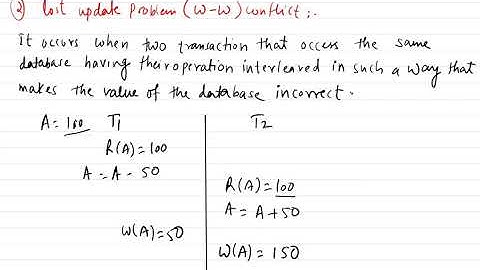 ② Lost update problem (W-W) conflict ;.
It occurs when two transaction that occess the same
database having their operation interleaved in such a way that
makes the value of the database incorrect.
A = 100 T1 T2
R(A) = 100
A = A - 50
R(A) = 100
A = A + 50
W(A) = 50
W(A) = 150